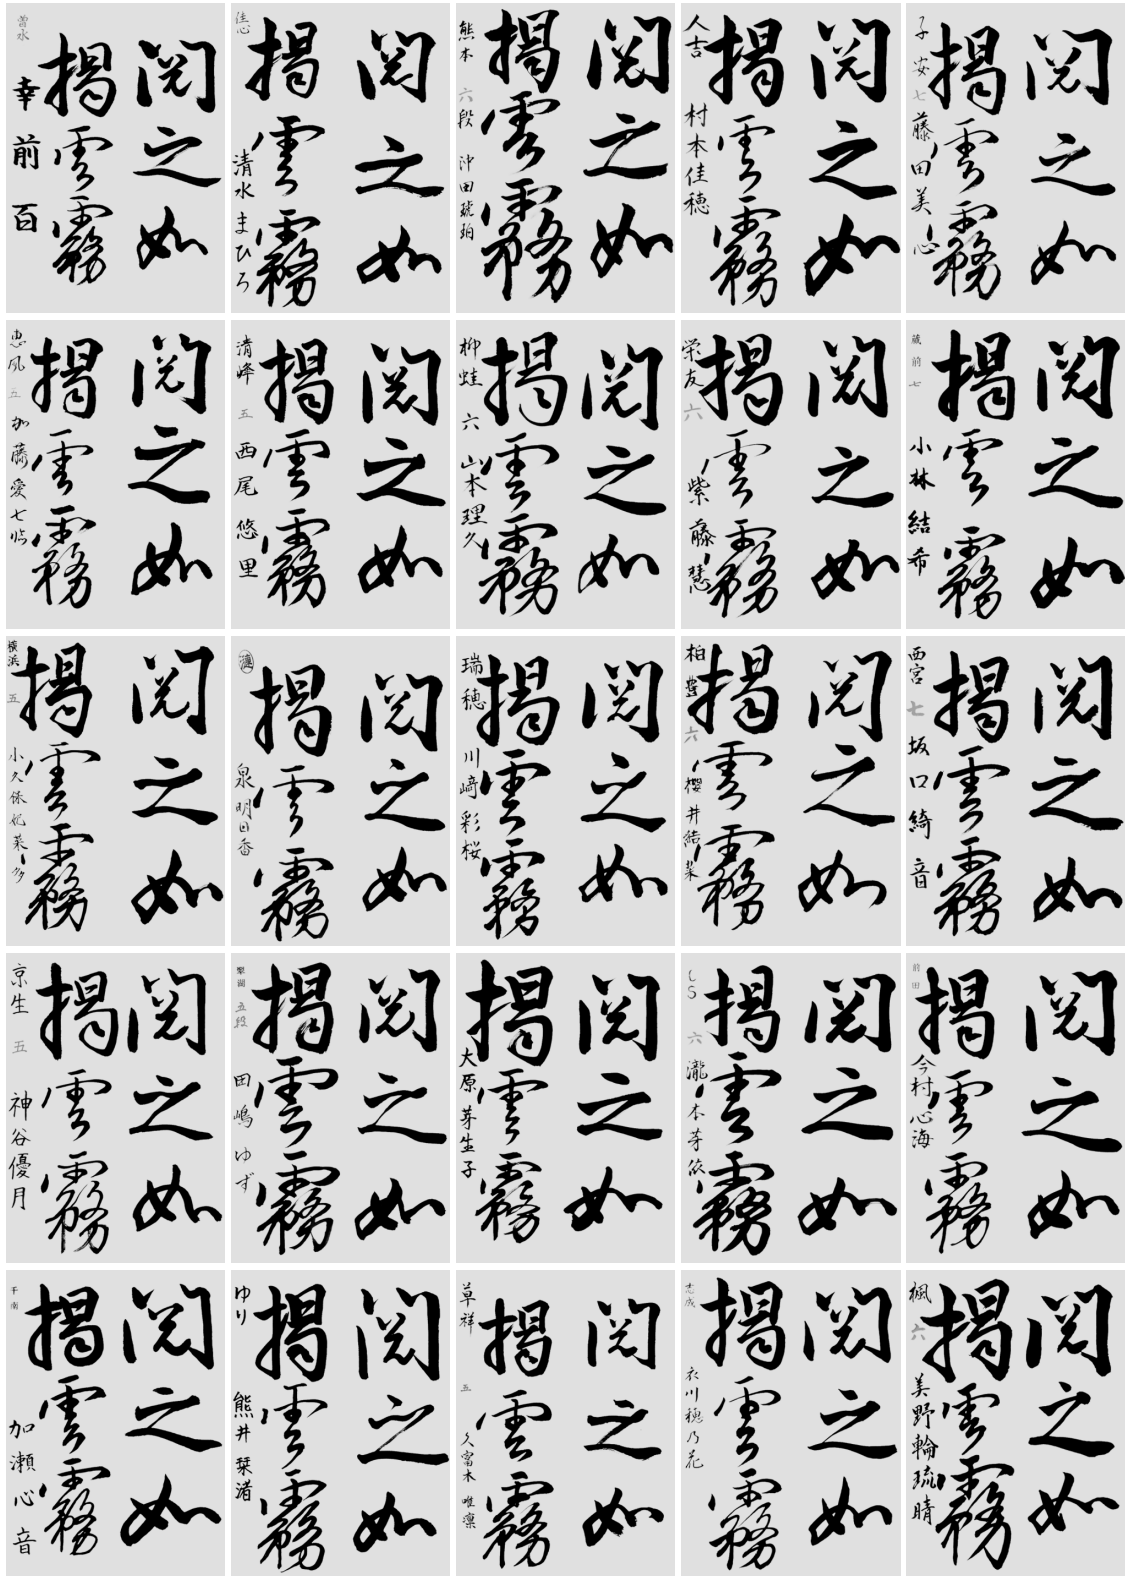 閲之如
掲雲霧
曽水 幸前百
閲之如
掲雲霧
佳心 清水まひろ
閲之如
掲雲霧
熊本 六段 沖田琥珀
閲之如
掲雲霧
人吉 村本佳穂
閲之如
掲雲霧
子安 七 藤田美心
閲之如
掲雲霧
恵風 五 加藤愛七臨
閲之如
掲雲霧
清峰 五 西尾悠里
閲之如
掲雲霧
柳蛙 六 山本理久
閲之如
掲雲霧
栄友 六 紫藤慧
閲之如
掲雲霧
蔵前 七 小林結希
閲之如
掲雲霧
横浜 五 小久保妃菜多
閲之如
掲雲霧
泉明日香
閲之如
掲雲霧
瑞穂 川﨑彩桜
閲之如
掲雲霧
柏豊 六 櫻井結菜
閲之如
掲雲霧
西宮 七 坂口綺音
閲之如
掲雲霧
京生 五 神谷優月
閲之如
掲雲霧
五段 田嶋ゆず
閲之如
掲雲霧
大原芽生子
閲之如
掲雲霧
しら 六 瀧本芽依
閲之如
掲雲霧
前田 今村心海
閲之如
掲雲霧
干南 加瀬心音
閲之如
掲雲霧
ゆり 熊井栞渚
閲之如
掲雲霧
草祥 五 久富木唯凛
閲之如
掲雲霧
志成 衣川穂乃花
閲之如
掲雲霧
楓 六 美野輪琉晴